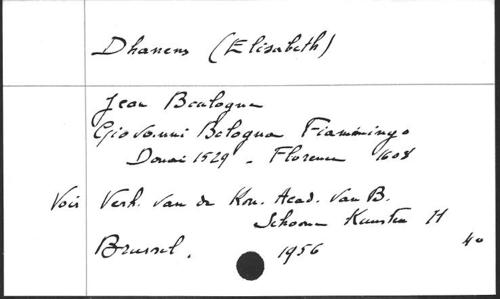 Dhanens (Elisabeth)
Jean Boulogne
Giovanni Bologna Fiammingo
Douai 1529 - Florence 1608
Voir Verh. van de Kon. Acad. van B.
Schoone Kunsten 11
Brussel, 1956 4°